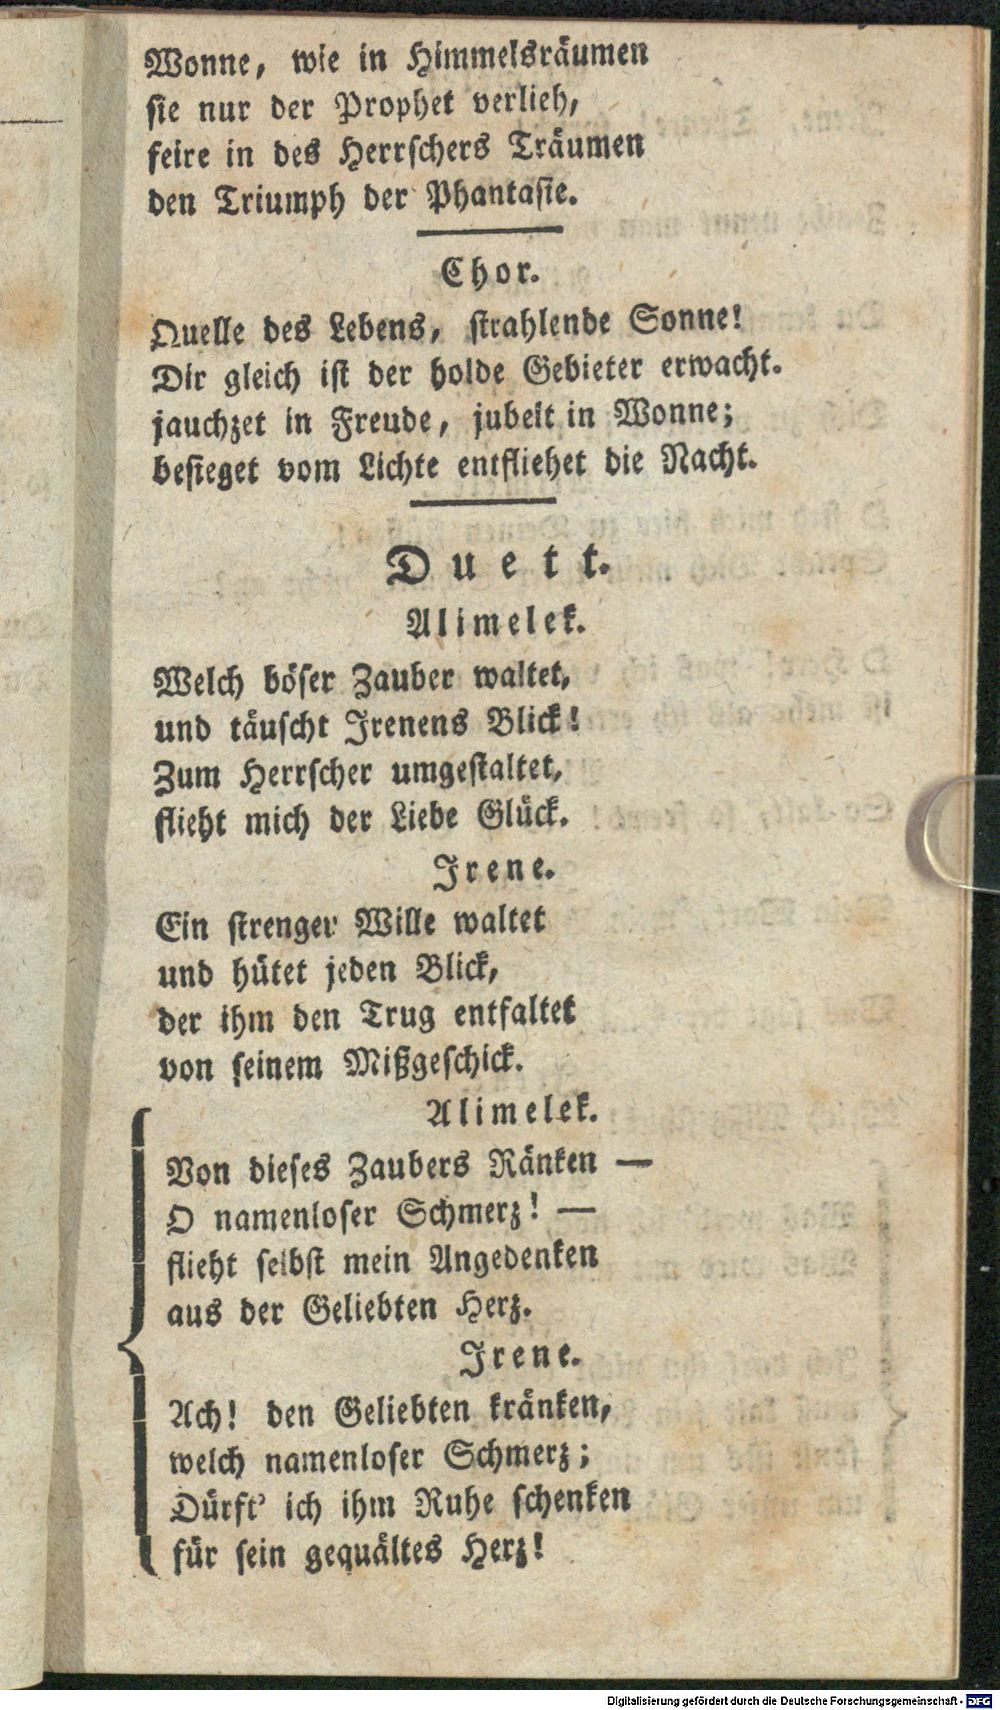 Wonne, wie in Himmelsräumen
sie nur der Prophet verlieh,
feire in des Herrschers Träumen
den Triumph der Phantasie.
Chor.
Quelle des Lebens, strahlende Sonne!
Dir gleich ist der holde Gebieter erwacht.
jauchzet in Freude, jubelt in Wonne;
besieget vom Lichte entfliehet die Nacht.
Duett.
Alimelek.
Welch böser Zauber waltet,
und täuscht Irenens Blick!
Zum Herrscher umgestaltet,
flieht mich der Liebe Glück.
Irene.
Ein strenger Wille waltet
und hütet jeden Blick,
der ihm den Trug entfaltet
von seinem Mißgeschick.
Alimelek.
Von dieses Zaubers Ränken —
O namenloser Schmerz! —
flieht selbst mein Angedenken
aus der Geliebten Herz.
Irene.
Ach! den Geliebten kränken,
welch namenloser Schmerz;
Dürft' ich ihm Ruhe schenken
für sein gequältes Herz!
Digitalisierung gefördert durch die Deutsche Forschungsgemeinschaft - DFG